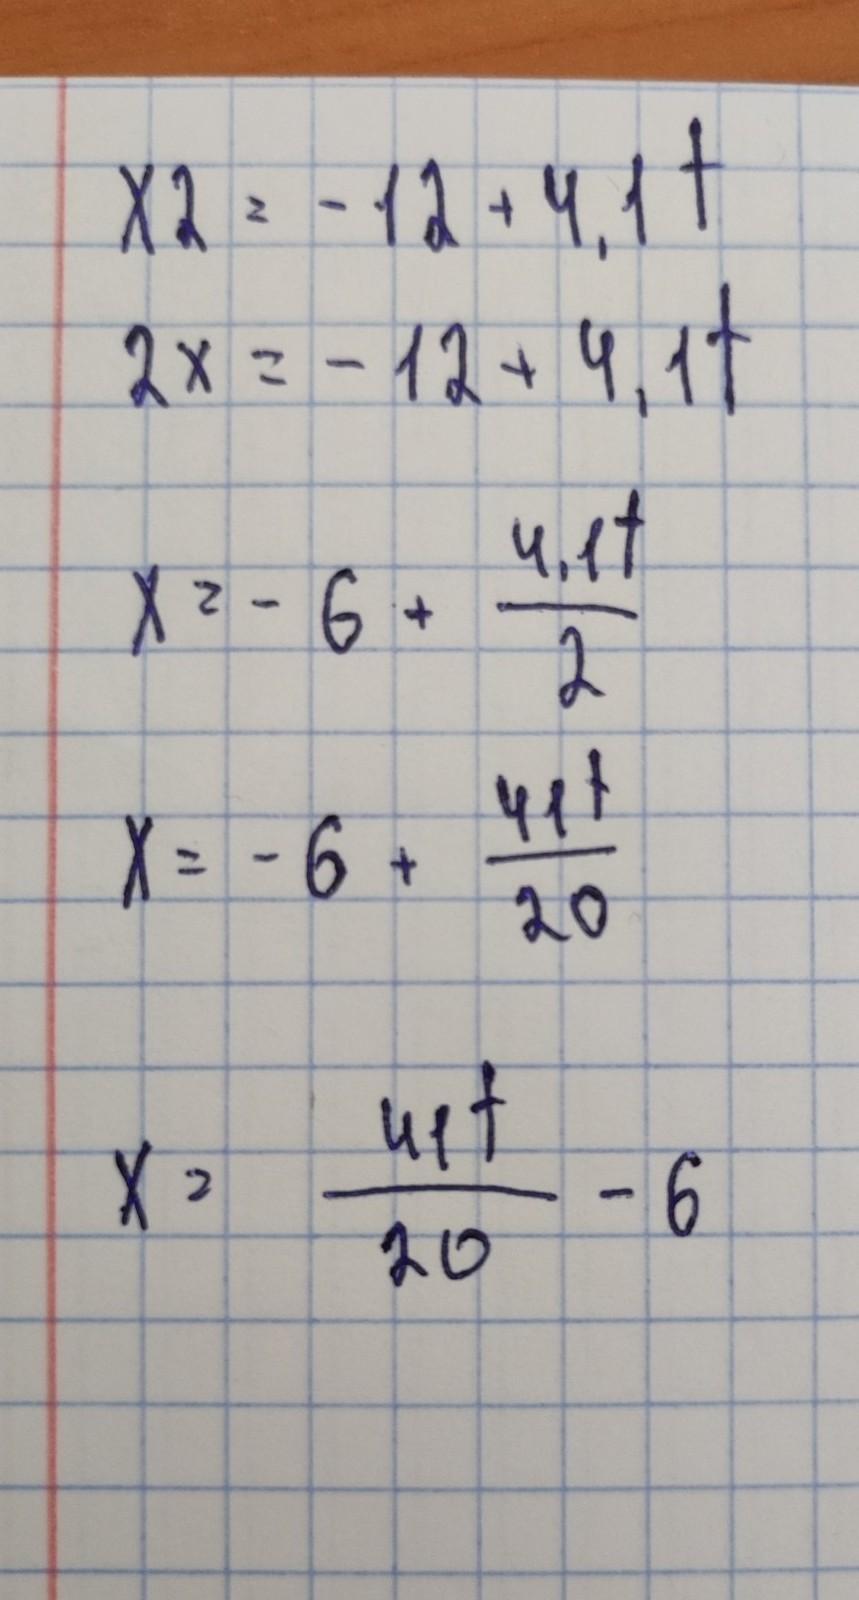 x2 = -12 + 4,1t
2x = -12 + 4,1t
x = -6 + 4,1t/2
x = -6 + 41t/20
x = 41t/20 - 6